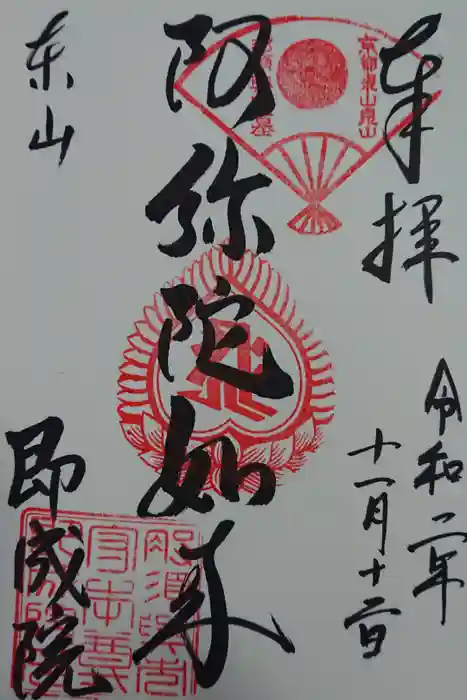 奉拝
令和二年
十一月十二日
京都東山泉山
阿弥陀如来
東山
即成院